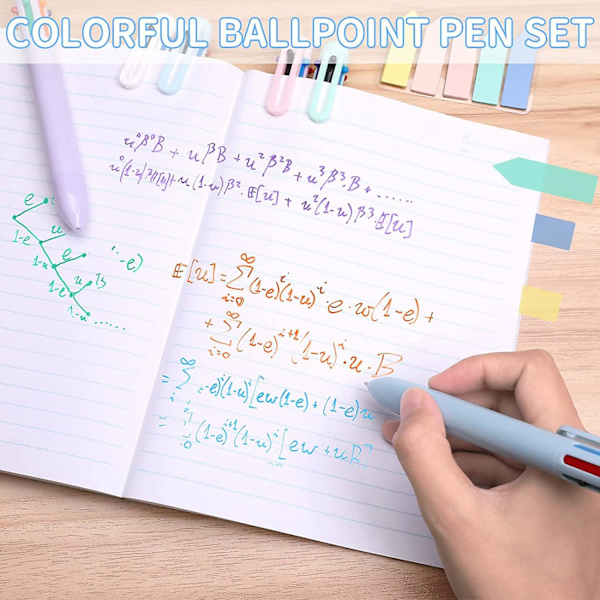 COLORFUL BALLPOINT PEN SET
u⁰β⁰B + uβB + u²β²B + u³β³·B + ......
+ u(1-u)β²·𝔼[u] + u²(1-u)β³·𝔼[u]
e
1-e
u
e
1-u
u B
1-e
1-u ......
-e)
𝔼[u] = ∞∑i=0 (1-e)ⁱ(1-u)ⁱ · e · w(1-e) +
+ ∞∑i=0 (1-e)ⁱ⁺¹(1-u)ⁱ · u · B
= ∞∑i -e)ⁱ(1-u)ⁱ[ew(1-e) + (1-e)u
= ∑i0 (1-e)ⁱ⁺¹(1-u)ⁱ[ew + uB]